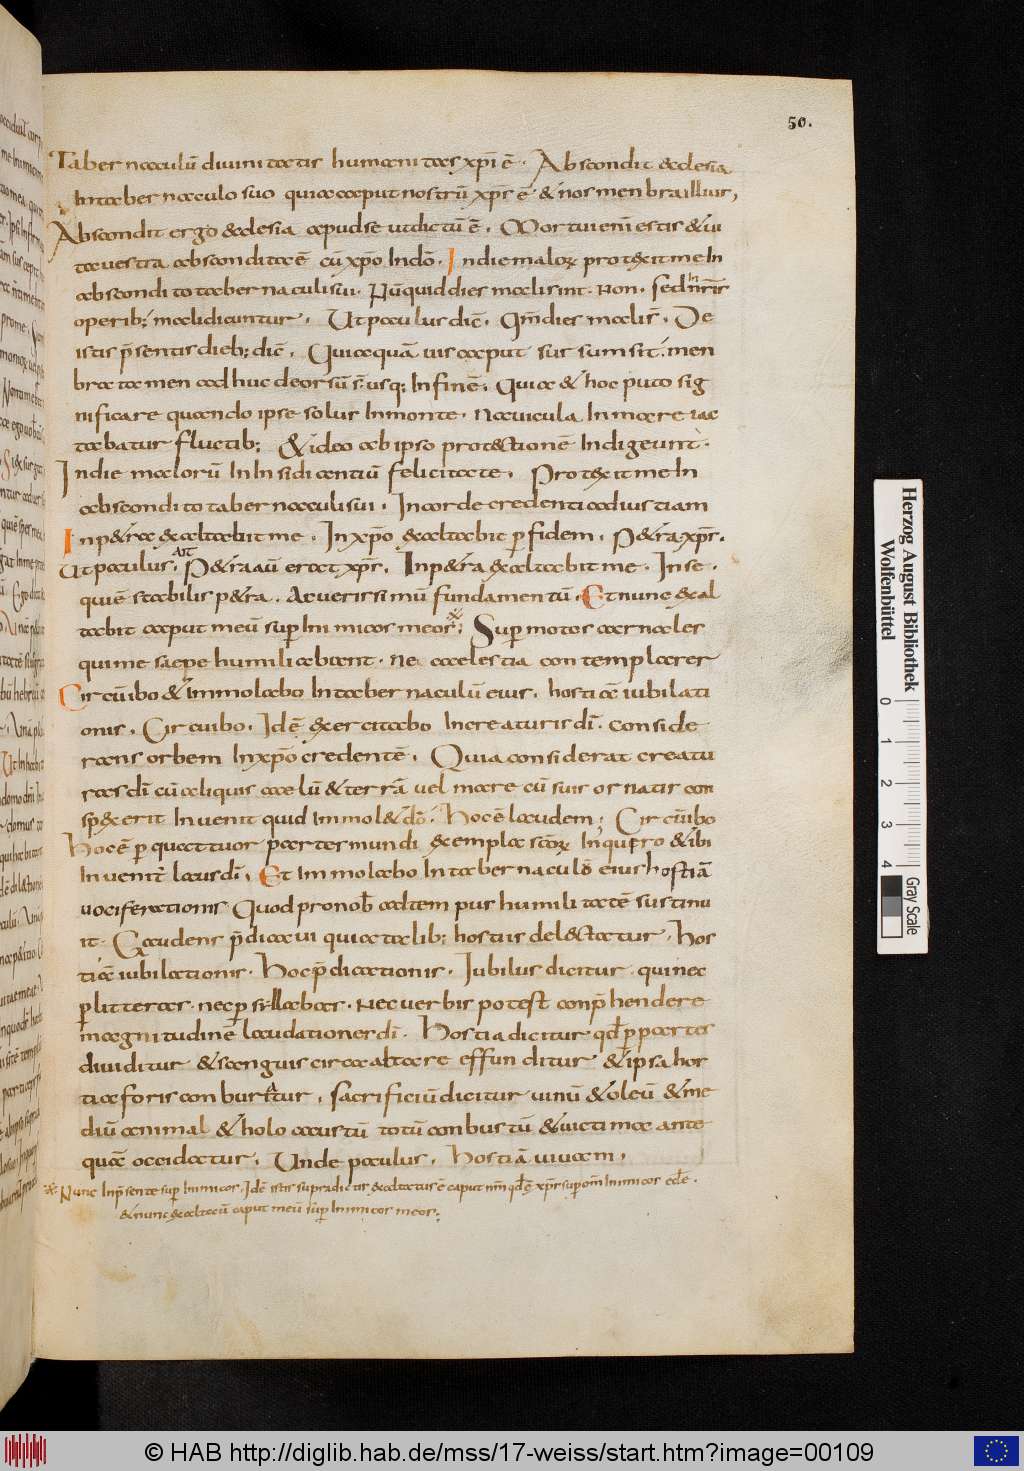 50.
Taber naculū diuinitatis humanitas xpi ē. Abscondit &clesia
In taber naculo suo quia caput nostrū xpr ē & nos menbra illius,
Abscondit ergo &clesia apud se ut dictū ē. Mortui enī estis & ui
ta uestra abscondita ē cū xpo In dō. In die maloꝝ protexit me In
abscondito taber naculi sui. Nūquid dies mali sint. Non. sed nris
operib; mali dicuntur. Ut paulus dic̄. Qm̄ dies mali s̄. De
istis p̄sentis dieb; dic̄. Quia quā uis caput sursum sit. men
bra tamen adhuc deorsū s̄ usq; In finē. Quia & hoc puto sig
nificare quando ipse solus In monte. Nauicula In mare iac
tabatur fluctib; & ideo ab ipso prot&ctionē Indigeunt.
In die malorū In Insidiantiū felicitate. Protexit me In
abscondito taber naculi sui. In corde credenti ad iustiam
In p&ra exaltabit me. In xpo exaltabit ꝑ fidem. P&ra xpr.
Ut paulus. Ait P&ra aū erat xpr. In p&ra exaltabit me. In se.
quiē stabilis p&ra. Ac uerissimū fundamentū. Et nunc exal
tabit caput meū suꝑ Inimicos meos; Suꝑmotos carnales
qui me saepe humiliabant. Ne caelestia contemplarer
Circūibo & Immolabo In taber naculū eius. hostiā iubilati
onis. Circuibo. Idē exercitabo In creaturis dī. Conside
rans orbem In xpo credentē. Quia considerat creatu
ras dī cū aliquis caelū & terrā uel mare cū suis ornatis con
spexerit Inuenit quid Immol& dō. Hoc ē laudem; Circūibo
Hoc ē ꝑ quattuor partes mundi exempla scōꝝ Inquiro & ibi
Inuenit laus dī. Et Immolabo In taber naculo eius hostiā
uociferationis Quod pro nob ad tempus humilitatē sustinu
it. Gaudens p̄dicaui quia talib; hostiis del&ctatur. Hos
tiā iubilationis. Hoc p̄dicationis. Iubilus dicitur qui nec
ꝑ litteras. nec ꝑ syllabas. Nec uerbis potest conp̄hendere
magnitudinē laudationes dī. Hostia dicitur qd ꝑ partes
diuiditur & sanguis circa altare effunditur & ipsa hos
tia foris conburatur. sacrificiū dicitur uinū & oleū & me
diū animal & holocaustū totū conbustū & uictima ante
quā occidatur. Unde paulus. Hostiā uiuam.
Nunc In p̄sente suꝑ Inimicos. Idē istis supradictis exaltatus ē caput mm̄ qd ē xpr suꝑ om̄ Inimicos ecl̄e.
& nunc exaltatū caput meū suꝑ Inimicos meos;
Herzog August Bibliothek
Wolfenbüttel
0 1 2 3 4
Gray Scale
© HAB http://diglib.hab.de/mss/17-weiss/start.htm?image=00109